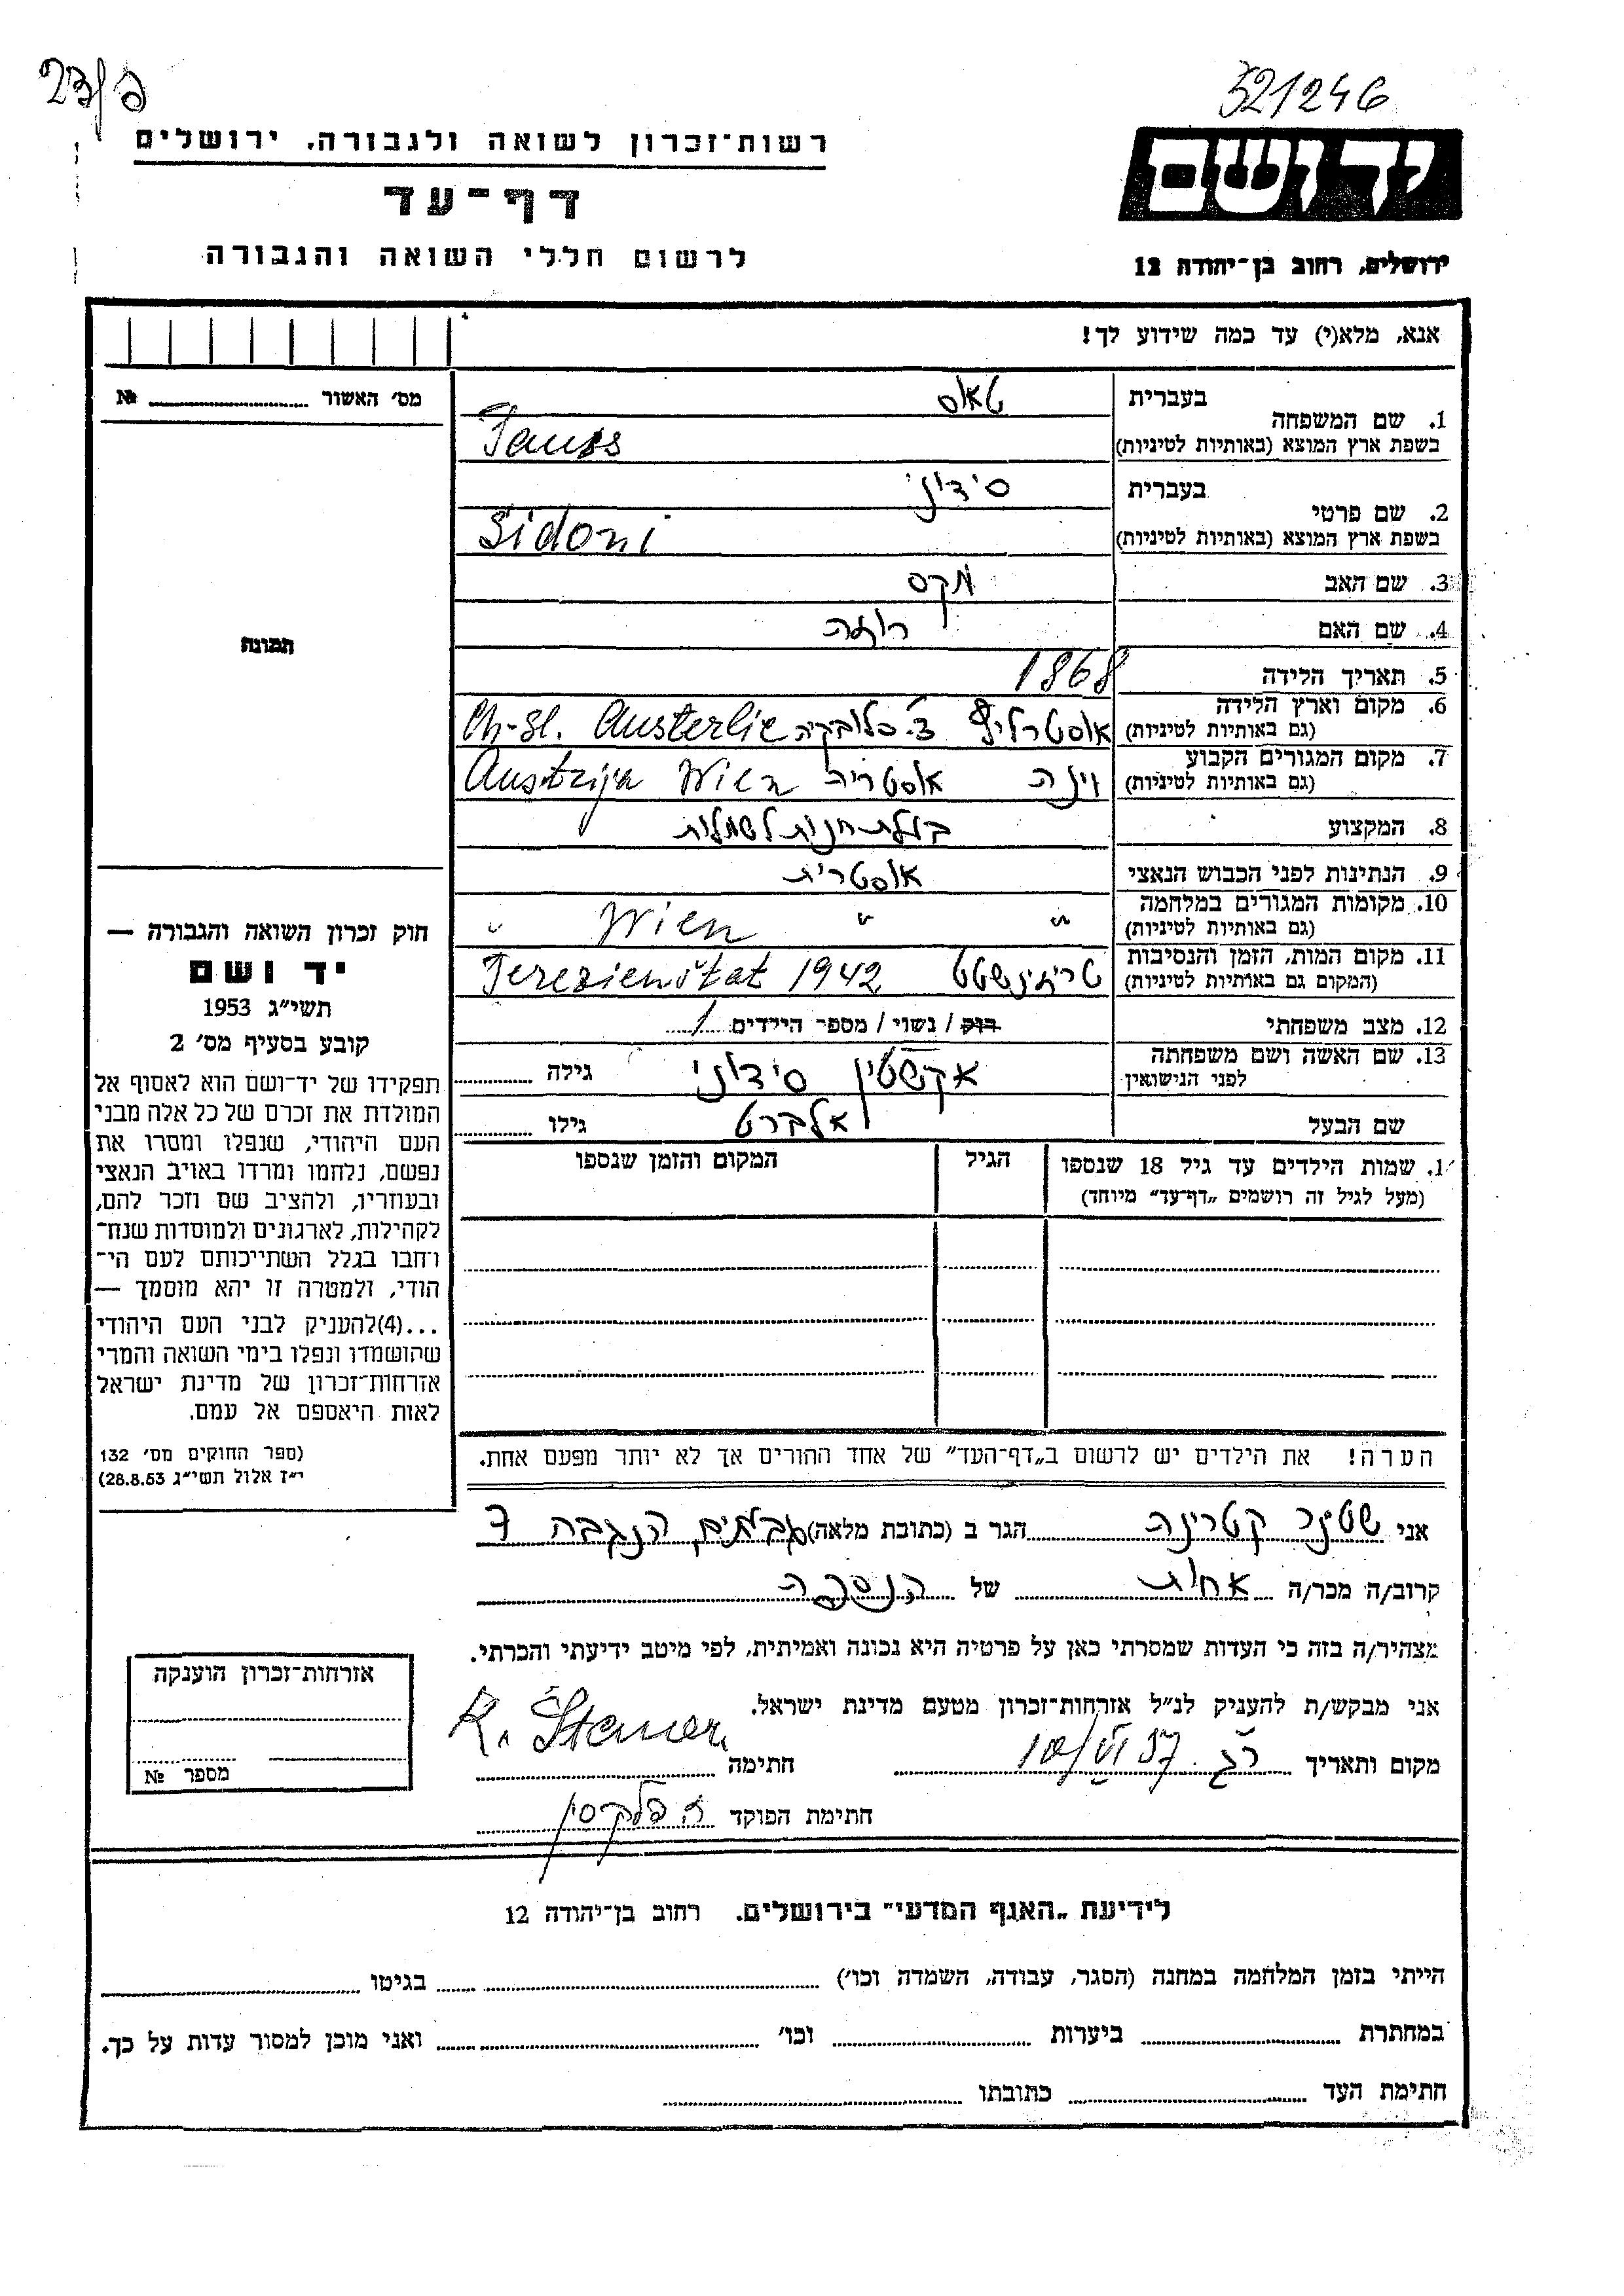 321246
רשות־זכרון לשואה ולגבורה, ירושלים
יד ושם
דף־עד
לרשום חללי השואה והגבורה
ירושלים, רחוב בן־יהודה 12
אנא, מלא(י) עד כמה שידוע לך!
מס׳ האשור № 
בעברית
טאוס
1. שם המשפחה
בשפת ארץ המוצא (באותיות לטיניות)
Tauss
בעברית
סידוני
2. שם פרטי
בשפת ארץ המוצא (באותיות לטיניות)
Sidoni
3. שם האב
מקס
4. שם האם
רוזה
תמונה
5. תאריך הלידה
1868
6. מקום וארץ הלידה
(גם באותיות לטיניות)
אוסטרליץ צ׳ סלובקיה Ch-Sl. Austerlic
7. מקום המגורים הקבוע
(גם באותיות לטיניות)
וינה אוסטריה Wien Austrija
8. המקצוע
בעלת חנות לשמלות
9. הנתינות לפני הכבוש הנאצי
אוסטרית
10. מקומות המגורים במלחמה
(גם באותיות לטיניות)
" " Wien "
11. מקום המות, הזמן והנסיבות
(המקום גם באותיות לטיניות)
טרזינשטט Terezienštat 1942
12. מצב משפחתי
רווק / נשוי / מספר הילדים 1
13. שם האשה ושם משפחתה
לפני הנישואין
אקשטין סידוני גילה
שם הבעל
אלברט גילו
שמות הילדים עד גיל 18 שנספו
(מעל לגיל זה רושמים „דף־עד״ מיוחד)
הגיל
המקום והזמן שנספו
חוק זכרון השואה והגבורה —
יד ושם
תשי״ג 1953
קובע בסעיף מס׳ 2
תפקידו של יד־ושם הוא לאסוף אל
המולדת את זכרם של כל אלה מבני
העם היהודי, שנפלו ומסרו את
נפשם, נלחמו ומרדו באויב הנאצי
ובעוזריו, ולהציב שם וזכר להם,
לקהילות, לארגונים ולמוסדות שנח־
רבו בגלל השתייכותם לעם הי־
הודי, ולמטרה זו יהא מוסמך —
...(4)להעניק לבני העם היהודי
שהושמדו ונפלו בימי השואה והמרי
אזרחות־זכרון של מדינת ישראל
לאות היאספם אל עמם.
(ספר החוקים מס׳ 132
י״ז אלול תשי״ג 28.8.53)
הערה! את הילדים יש לרשום ב„דף־העד״ של אחד ההורים אך לא יותר מפעם אחת.
אני שטינר קטרינה הגר ב (כתובת מלאה) הנגבה 7
קרוב/ה מכר/ה אחות של הנספה
מצהיר/ה בזה כי העדות שמסרתי כאן על פרטיה היא נכונה ואמיתית, לפי מיטב ידיעתי והכרתי.
אני מבקש/ת להעניק לנ״ל אזרחות־זכרון מטעם מדינת ישראל.
מקום ותאריך ר״ג 10/VI 57 חתימה K. Steiner
חתימת הפוקד
אזרחות־זכרון הוענקה
מספר №
לידיעת „האגף המדעי״ בירושלים. רחוב בן־יהודה 12
הייתי בזמן המלחמה במחנה (הסגר, עבודה, השמדה וכו׳) בגיטו
במחתרת ביערות וכו׳ ואני מוכן למסור עדות על כך.
חתימת העד כתובתו